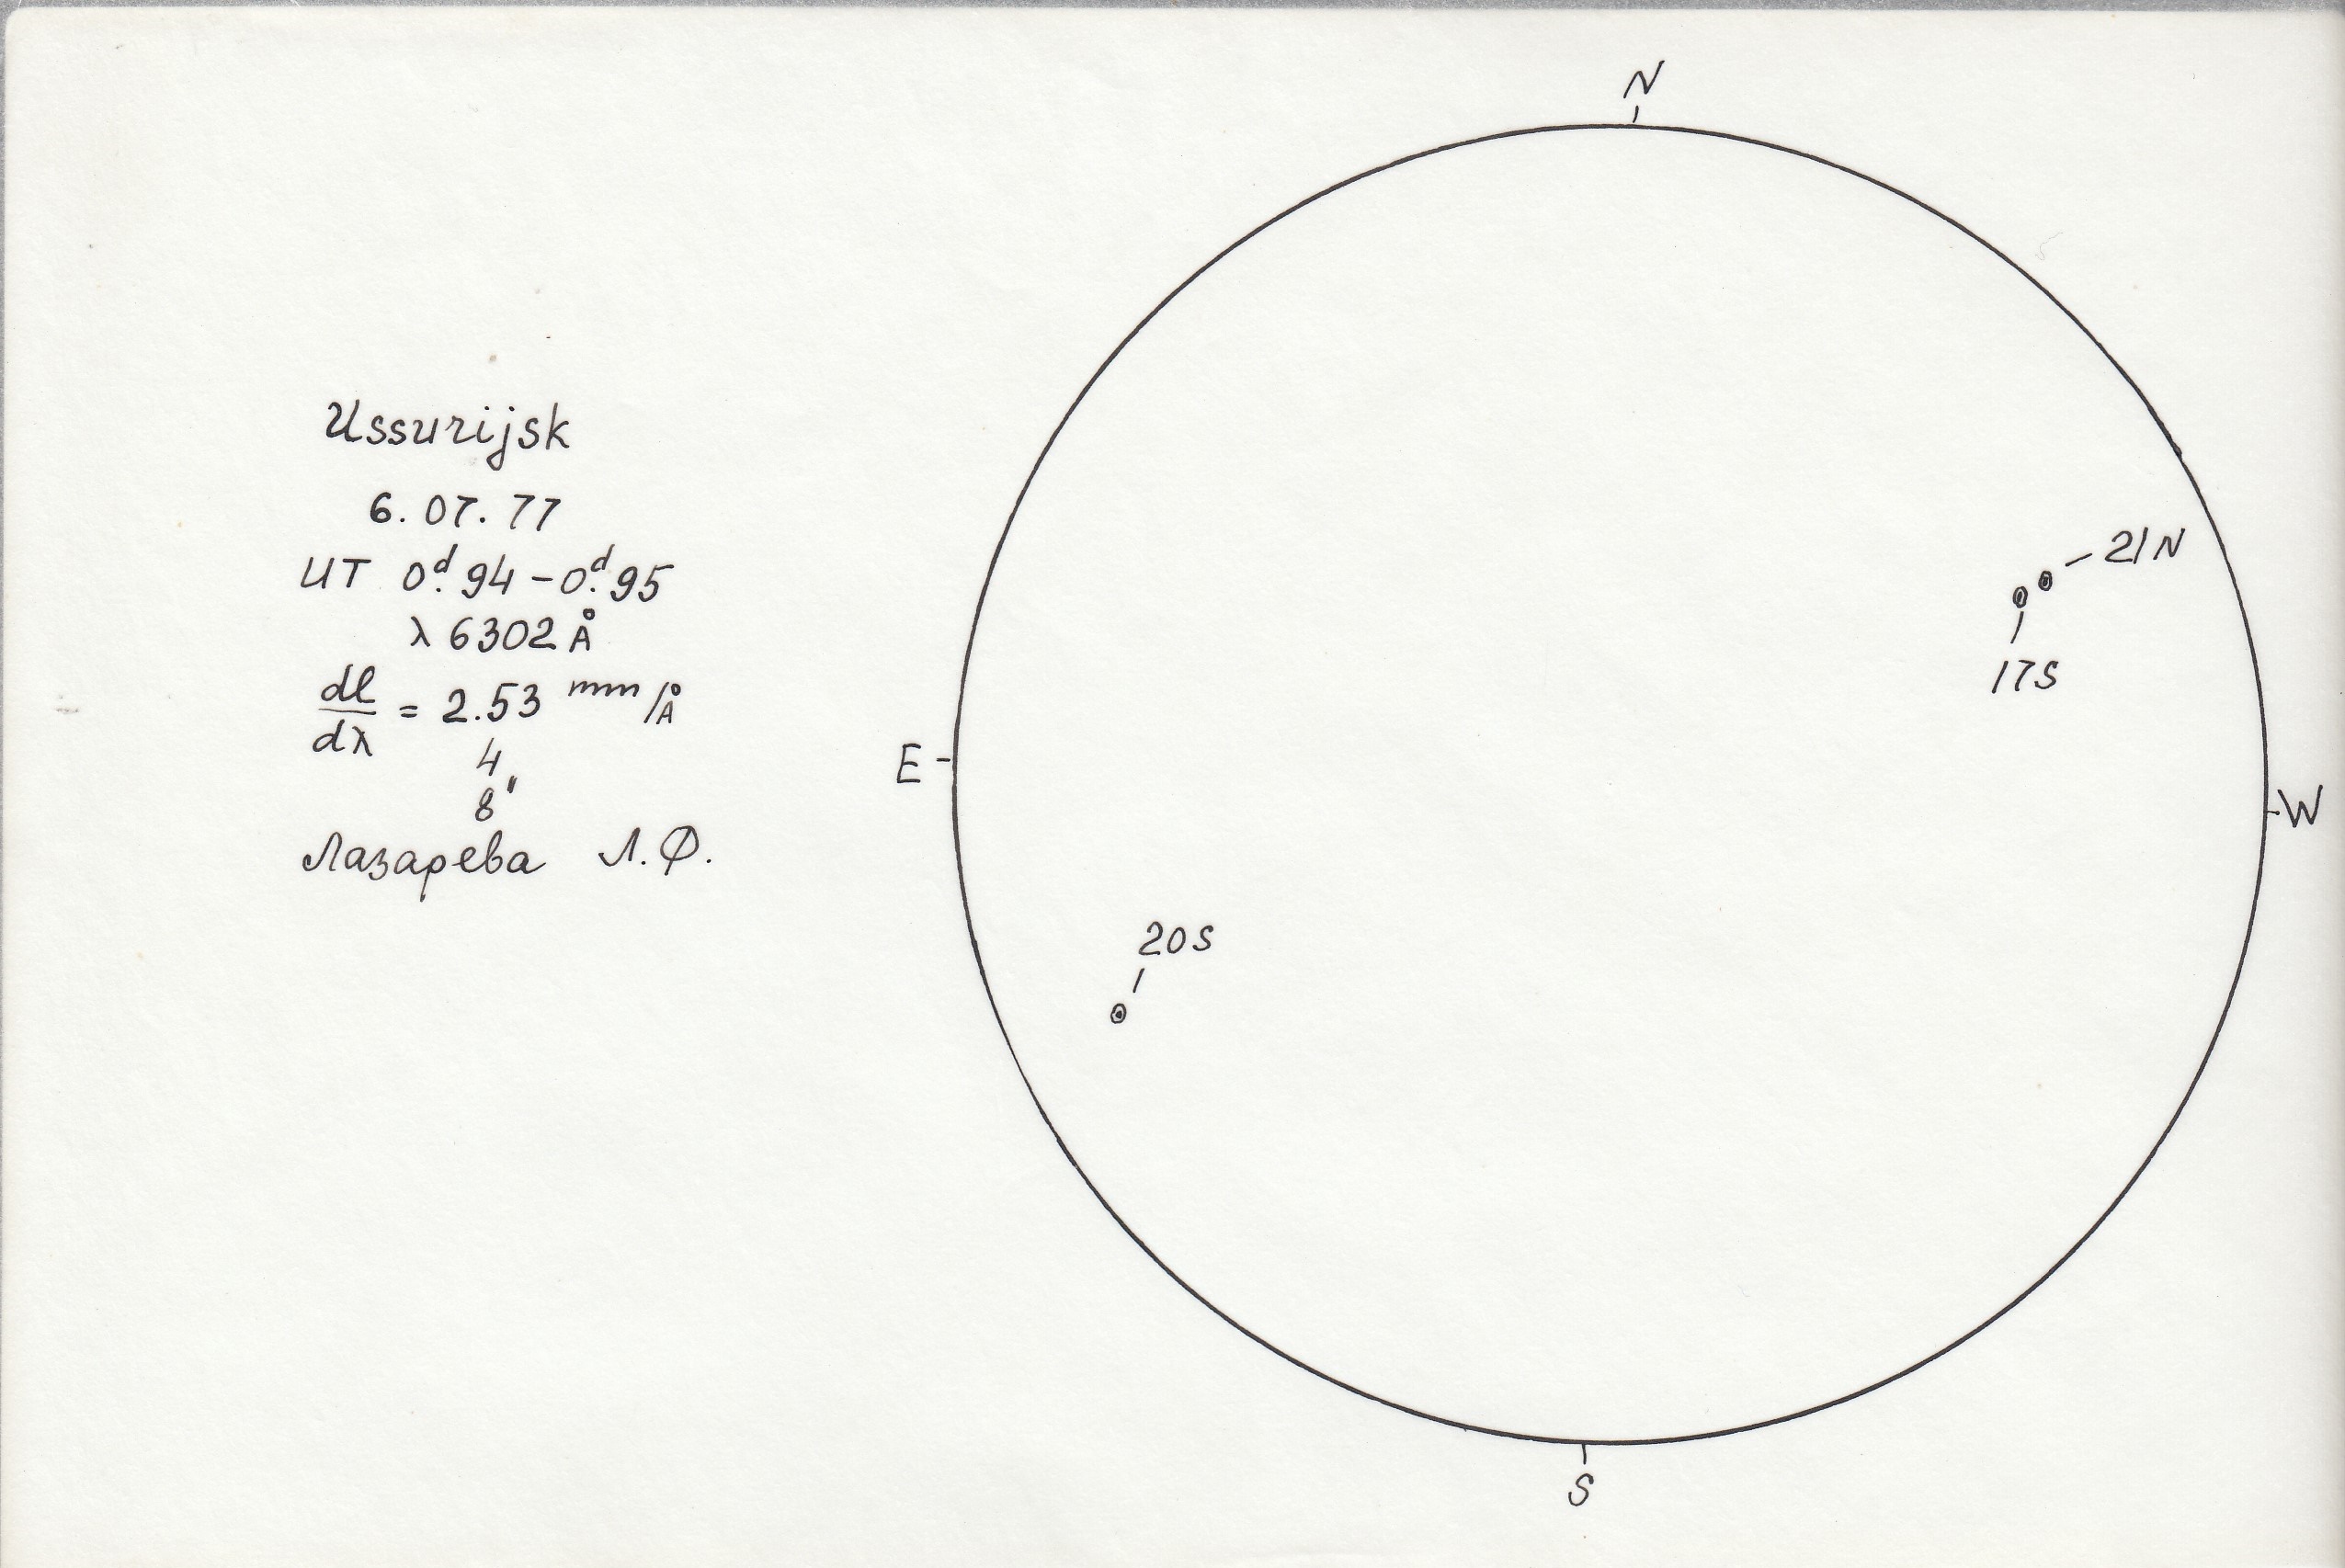 Ussurijsk
6.07.77
UT 0ᵈ.94 – 0ᵈ.95
λ 6302 Å
dl/dλ = 2.53 mm/Å
4
8"
Лазарева Л.Ф.
N
21N
17S
E
W
20S
S